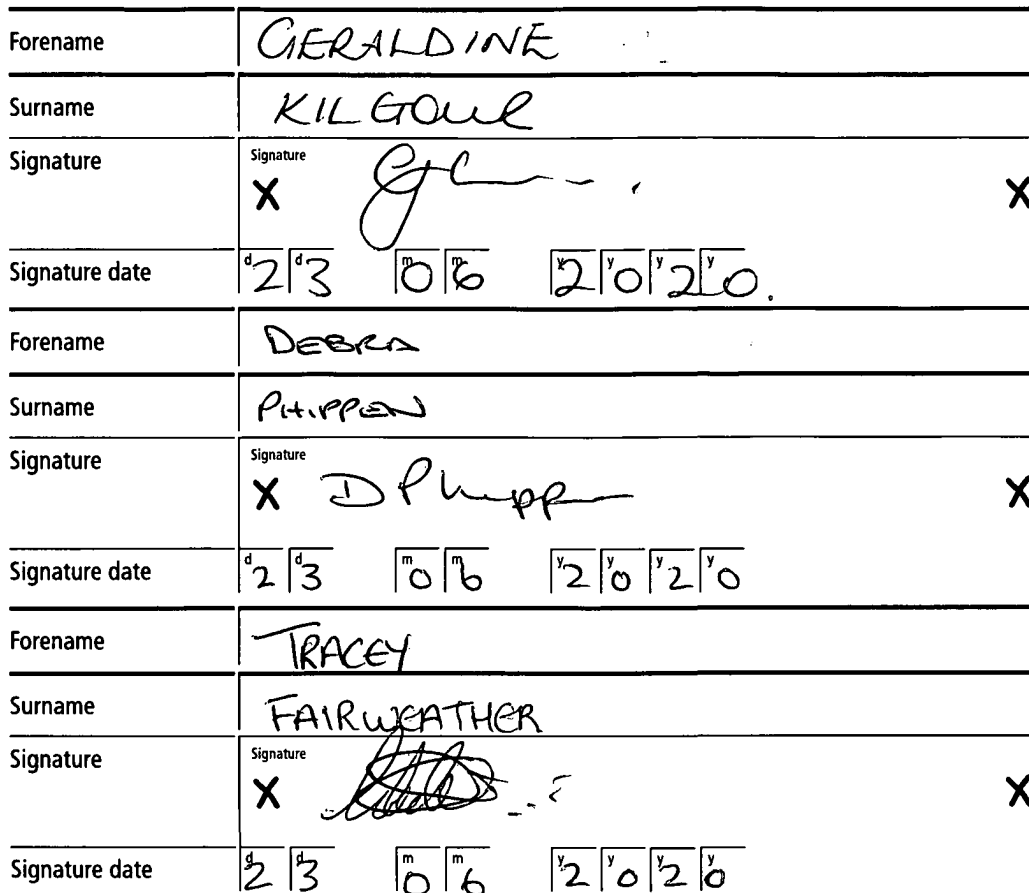 Forename GERALDINE
Surname KILGOUR
Signature Signature X X
Signature date d2 d3 m0 m6 y2 y0 y2 y0.
Forename DEBRA
Surname PHIPPEN
Signature Signature X D Phippen X
Signature date d2 d3 m0 m6 y2 y0 y2 y0
Forename TRACEY
Surname FAIRWEATHER
Signature Signature X X
Signature date d2 d3 m0 m6 y2 y0 y2 y0